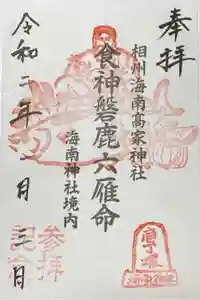 奉拝
相州海南高家神社
食神磐鹿六雁命
海南神社境内
令和二年二月三日
参拝
記念
庖丁塚